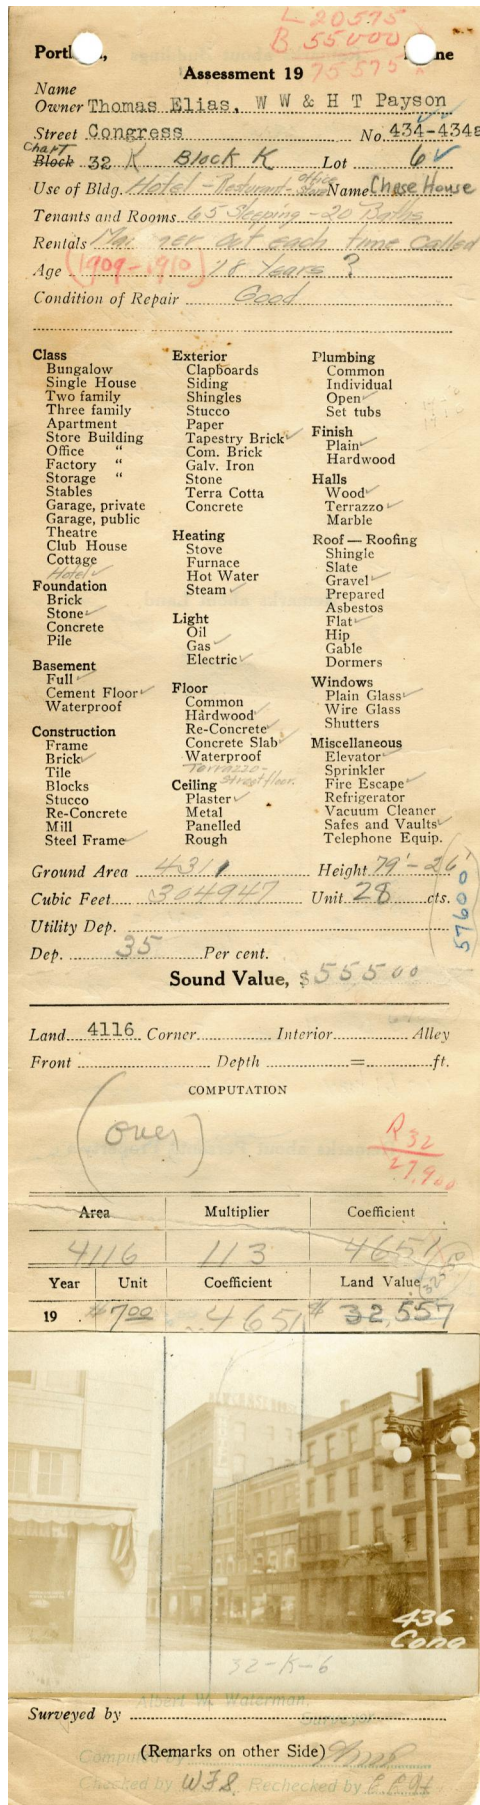 L 20575
B 55000
75575
Portland, Maine
Assessment 19
Name
Owner Thomas Elias, W W & H T Payson
Street Congress No. 434-434a
Chart
Block 32 K Block K Lot 6
Use of Bldg. Hotel - Restaurant - office Name Chase House
Tenants and Rooms 65 Sleeping - 20 Baths
Rentals Manager out each time called
Age (1909-1910) 18 Years ?
Condition of Repair Good
Class
Bungalow
Single House
Two family
Three family
Apartment
Store Building
Office “
Factory “
Storage “
Stables
Garage, private
Garage, public
Theatre
Club House
Cottage
Hotel ✓
Foundation
Brick
Stone ✓
Concrete
Pile
Basement
Full ✓
Cement Floor ✓
Waterproof
Construction
Frame
Brick ✓
Tile
Blocks
Stucco
Re-Concrete
Mill
Steel Frame ✓
Exterior
Clapboards
Siding
Shingles
Stucco
Paper
Tapestry Brick ✓
Com. Brick
Galv. Iron
Stone
Terra Cotta
Concrete
Heating
Stove
Furnace
Hot Water
Steam ✓
Light
Oil
Gas ✓
Electric ✓
Floor
Common
Hardwood ✓
Re-Concrete ✓
Concrete Slab ✓
Waterproof
Terrazzo-
Street floor.
Ceiling
Plaster ✓
Metal
Panelled
Rough
Plumbing
Common
Individual
Open ✓
Set tubs
Finish
Plain ✓
Hardwood
Halls
Wood ✓
Terrazzo ✓
Marble
Roof — Roofing
Shingle
Slate
Gravel ✓
Prepared
Asbestos
Flat ✓
Hip
Gable
Dormers
Windows
Plain Glass ✓
Wire Glass
Shutters
Miscellaneous
Elevator ✓
Sprinkler
Fire Escape ✓
Refrigerator
Vacuum Cleaner
Safes and Vaults ✓
Telephone Equip.
Ground Area 4311 Height 79'-26'
Cubic Feet 304947 Unit 28 cts.
57600
Utility Dep.
Dep. 35 Per cent.
Sound Value, $55500
Land 4116 Corner Interior Alley
Front Depth = ft.
COMPUTATION
(over)
R 32
27,900
Area Multiplier Coefficient
4116 113 4651
Year Unit Coefficient Land Value
19 $7.00 4651 $32,557
436
Cong
32-K-6
Albert W. Waterman,
Surveyed by Surveyor
(Remarks on other Side)
Computed by
Checked by W.F.S. Rechecked by